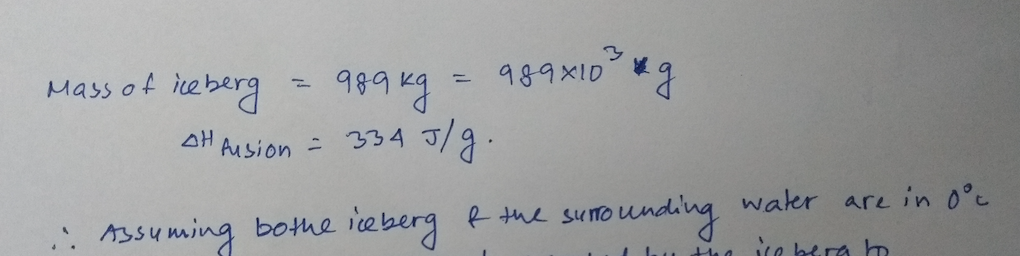 Mass of iceberg = 989 kg = 989×10³ g
ΔH fusion = 334 J/g.
∴ Assuming bothe iceberg & the surrounding water are in 0°c
by the iceberg to